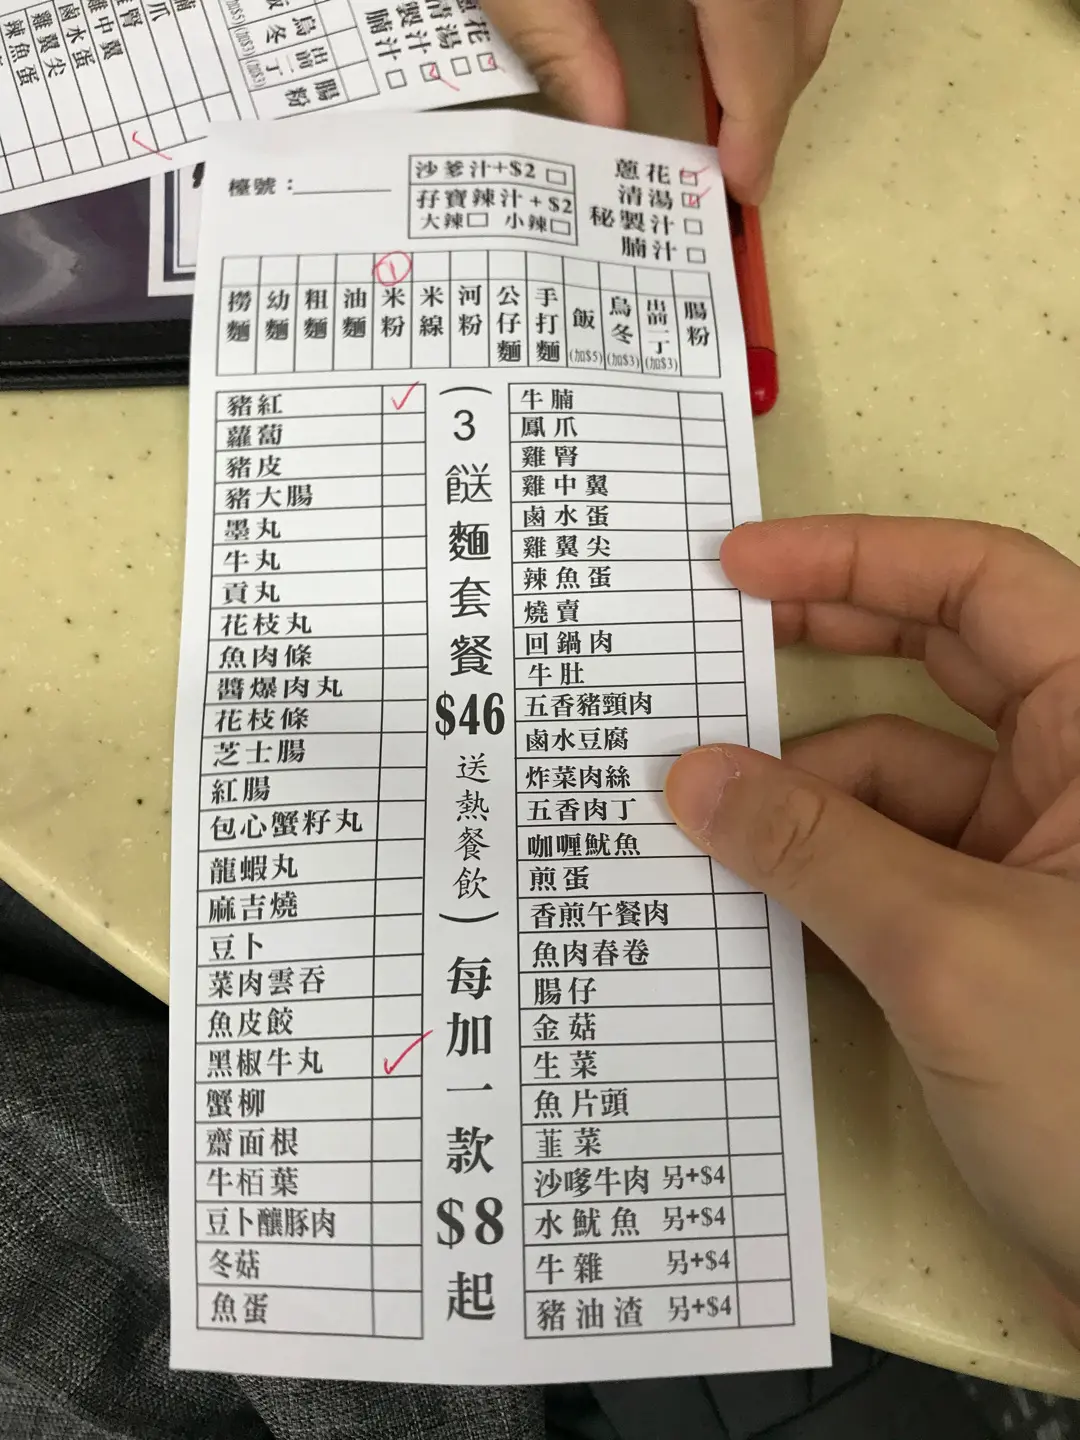 蔥花
清湯
製汁
腩汁
腸粉
出前一丁 (加$3)
烏冬 (加$3)
(加$5)
爪
雞中翼
鹵水蛋
雞翼尖
辣魚蛋
檯號：
沙爹汁+$2
孖寶辣汁+$2
大辣 小辣
蔥花
清湯
秘製汁
腩汁
1
撈麵
幼麵
粗麵
油麵
米粉
米線
河粉
公仔麵
手打麵
飯 (加$5)
烏冬 (加$3)
出前一丁 (加$3)
腸粉
豬紅
蘿蔔
豬皮
豬大腸
墨丸
牛丸
貢丸
花枝丸
魚肉條
醬爆肉丸
花枝條
芝士腸
紅腸
包心蟹籽丸
龍蝦丸
麻吉燒
豆卜
菜肉雲吞
魚皮餃
黑椒牛丸
蟹柳
齋面根
牛栢葉
豆卜釀豚肉
冬菇
魚蛋
(3餸麵套餐$46送熱餐飲)每加一款$8起
牛腩
鳳爪
雞腎
雞中翼
鹵水蛋
雞翼尖
辣魚蛋
燒賣
回鍋肉
牛肚
五香豬頸肉
鹵水豆腐
炸菜肉絲
五香肉丁
咖喱魷魚
煎蛋
香煎午餐肉
魚肉春卷
腸仔
金菇
生菜
魚片頭
韮菜
沙嗲牛肉 另+$4
水魷魚 另+$4
牛雜 另+$4
豬油渣 另+$4